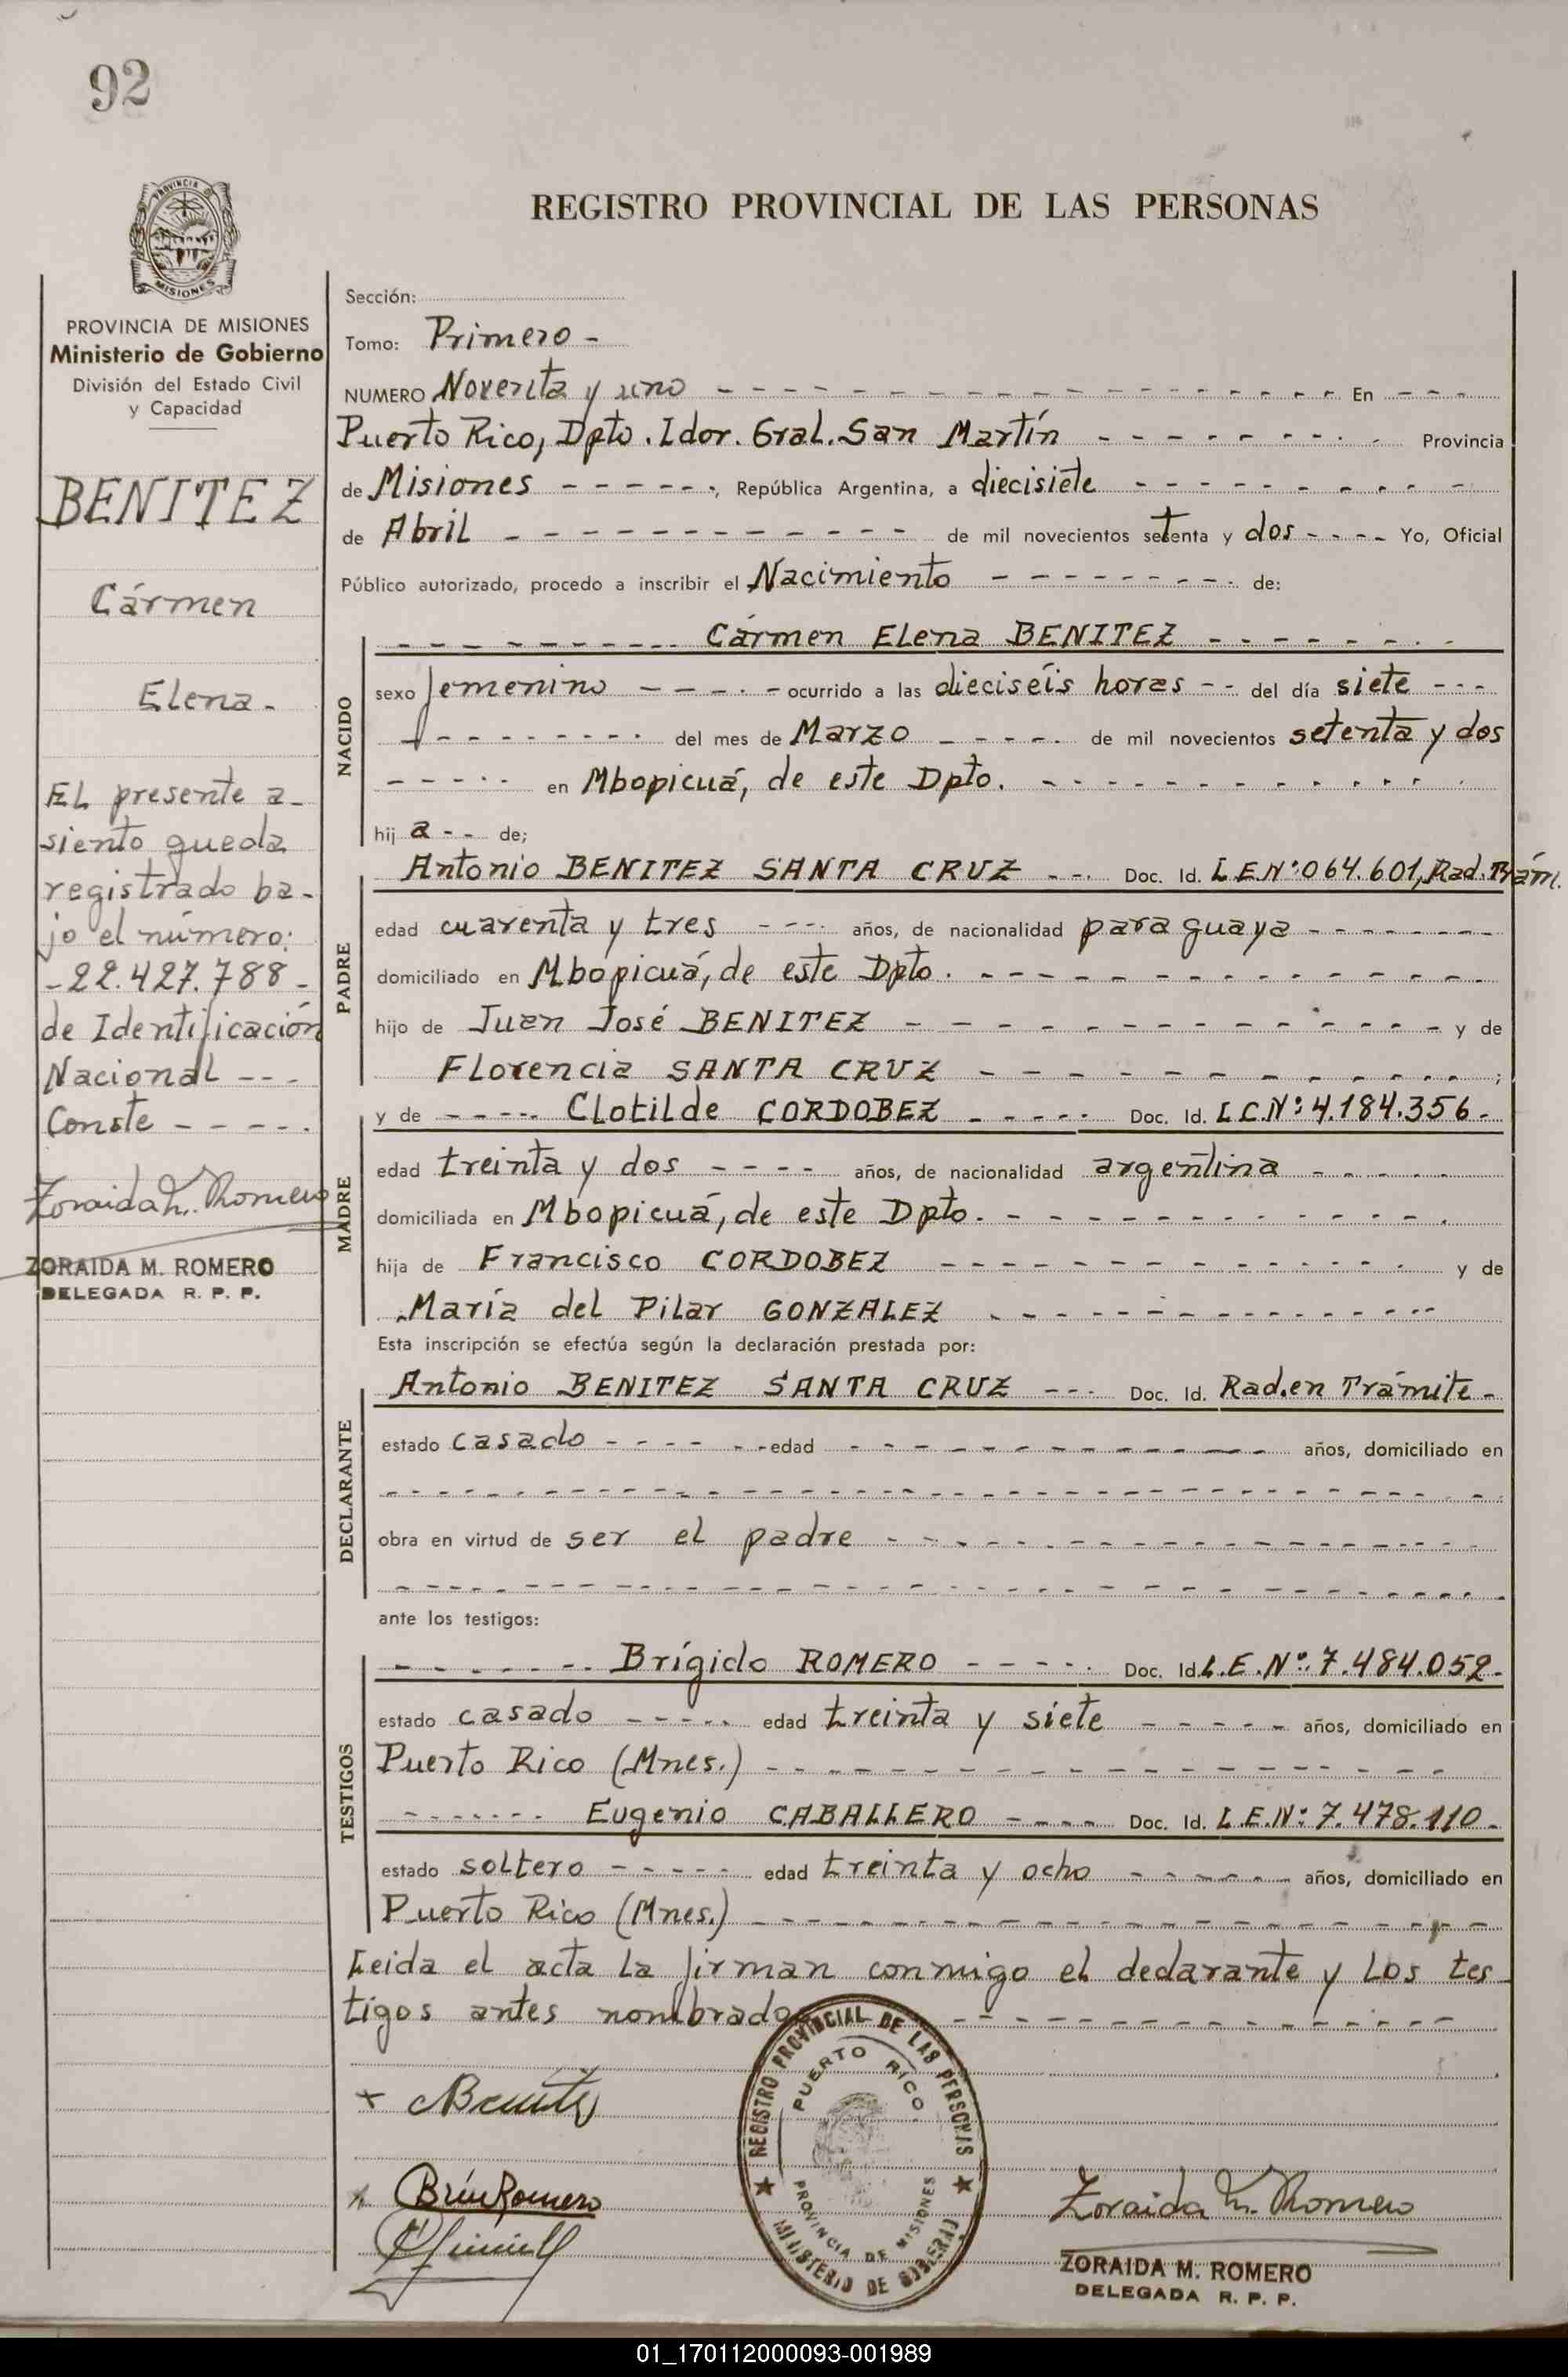 92
PROVINCIA DE
MISIONES
REGISTRO PROVINCIAL DE LAS PERSONAS
PROVINCIA DE MISIONES
Ministerio de Gobierno
División del Estado Civil
y Capacidad
BENITEZ
Cármen
Elena.-
El presente a-
siento queda
registrado ba-
jo el número:
-22.427.788-
de Identificación
Nacional ---
Conste -----.
Zoraida M. Romero
ZORAIDA M. ROMERO
DELEGADA R. P. P.
Sección:
Tomo: Primero -
NUMERO Noventa y uno - - - En - - -
Puerto Rico, Dpto. Ldor. Gral. San Martín - - - Provincia
de Misiones - - - , República Argentina, a diecisiete - - -
de Abril - - - de mil novecientos setenta y dos - - - Yo, Oficial
Público autorizado, procedo a inscribir el Nacimiento - - - de:
- - - Cármen Elena BENITEZ - - -
NACIDO
sexo femenino - - - ocurrido a las dieciséis horas - - del día siete - - -
- - - del mes de Marzo - - - de mil novecientos setenta y dos
- - - en Mbopicuá, de este Dpto. - - -
hij a - - de;
PADRE
Antonio BENITEZ SANTA CRUZ - - - Doc. Id. L.E.Nº:064.601, Rad. Trám.
edad cuarenta y tres - - - años, de nacionalidad paraguaya - - -
domiciliado en Mbopicuá, de este Dpto. - - -
hijo de Juan José BENITEZ - - - y de
Florencia SANTA CRUZ - - - ;
MADRE
y de - - - Clotilde CORDOBEZ - - - Doc. Id. L.C.Nº:4.184.356.-
edad treinta y dos - - - años, de nacionalidad argentina - - -
domiciliada en Mbopicuá, de este Dpto. - - -
hija de Francisco CORDOBEZ - - - y de
María del Pilar GONZALEZ - - -
Esta inscripción se efectúa según la declaración prestada por:
DECLARANTE
Antonio BENITEZ SANTA CRUZ - - - Doc. Id. Rad. en Trámite.-
estado casado - - - edad - - - años, domiciliado en
- - -
obra en virtud de ser el padre - - -
- - -
ante los testigos:
TESTIGOS
- - - Brígido ROMERO - - - Doc. Id. L.E.Nº:7.484.052.-
estado casado - - - edad treinta y siete - - - años, domiciliado en
Puerto Rico (Mnes.) - - -
- - - Eugenio CABALLERO - - - Doc. Id. L.E.Nº:7.478.110.-
estado soltero - - - edad treinta y ocho - - - años, domiciliado en
Puerto Rico (Mnes.) - - -
Leida el acta la firman conmigo el declarante y los tes
tigos antes nombrados - - -
REGISTRO PROVINCIAL DE LAS PERSONAS
PUERTO RICO
PROVINCIA DE MISIONES
MINISTERIO DE GOBIERNO
Zoraida M. Romero
ZORAIDA M. ROMERO
DELEGADA R. P. P.
01_170112000093-001989